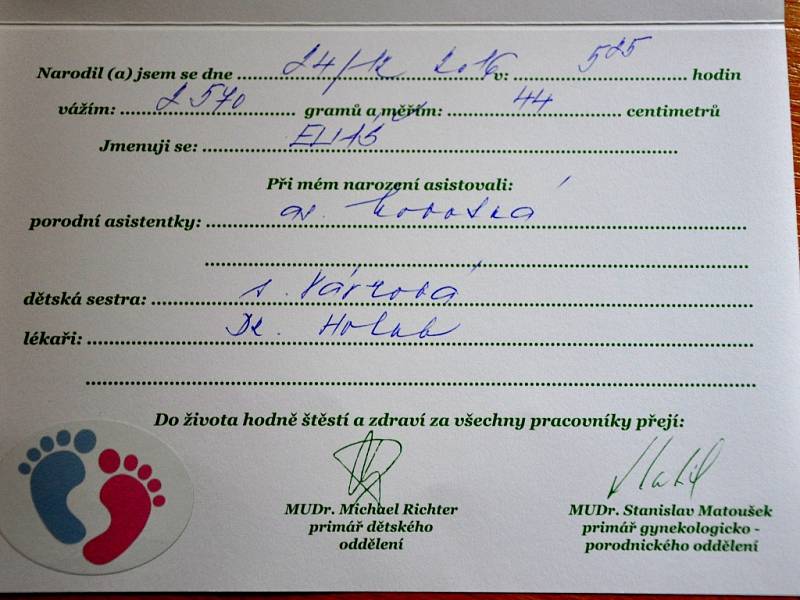 Narodil (a) jsem se dne 24/12 2016 v: 5 25 hodin
vážím: 2 570 gramů a měřím: 44 centimetrů
Jmenuji se: ELIÁŠ
Při mém narození asistovali:
porodní asistentky: as.
dětská sestra: s. Vávrová
lékaři: Dr. Holub
Do života hodně štěstí a zdraví za všechny pracovníky přejí:
MUDr. Michael Richter
primář dětského
oddělení
MUDr. Stanislav Matoušek
primář gynekologicko -
porodnického oddělení